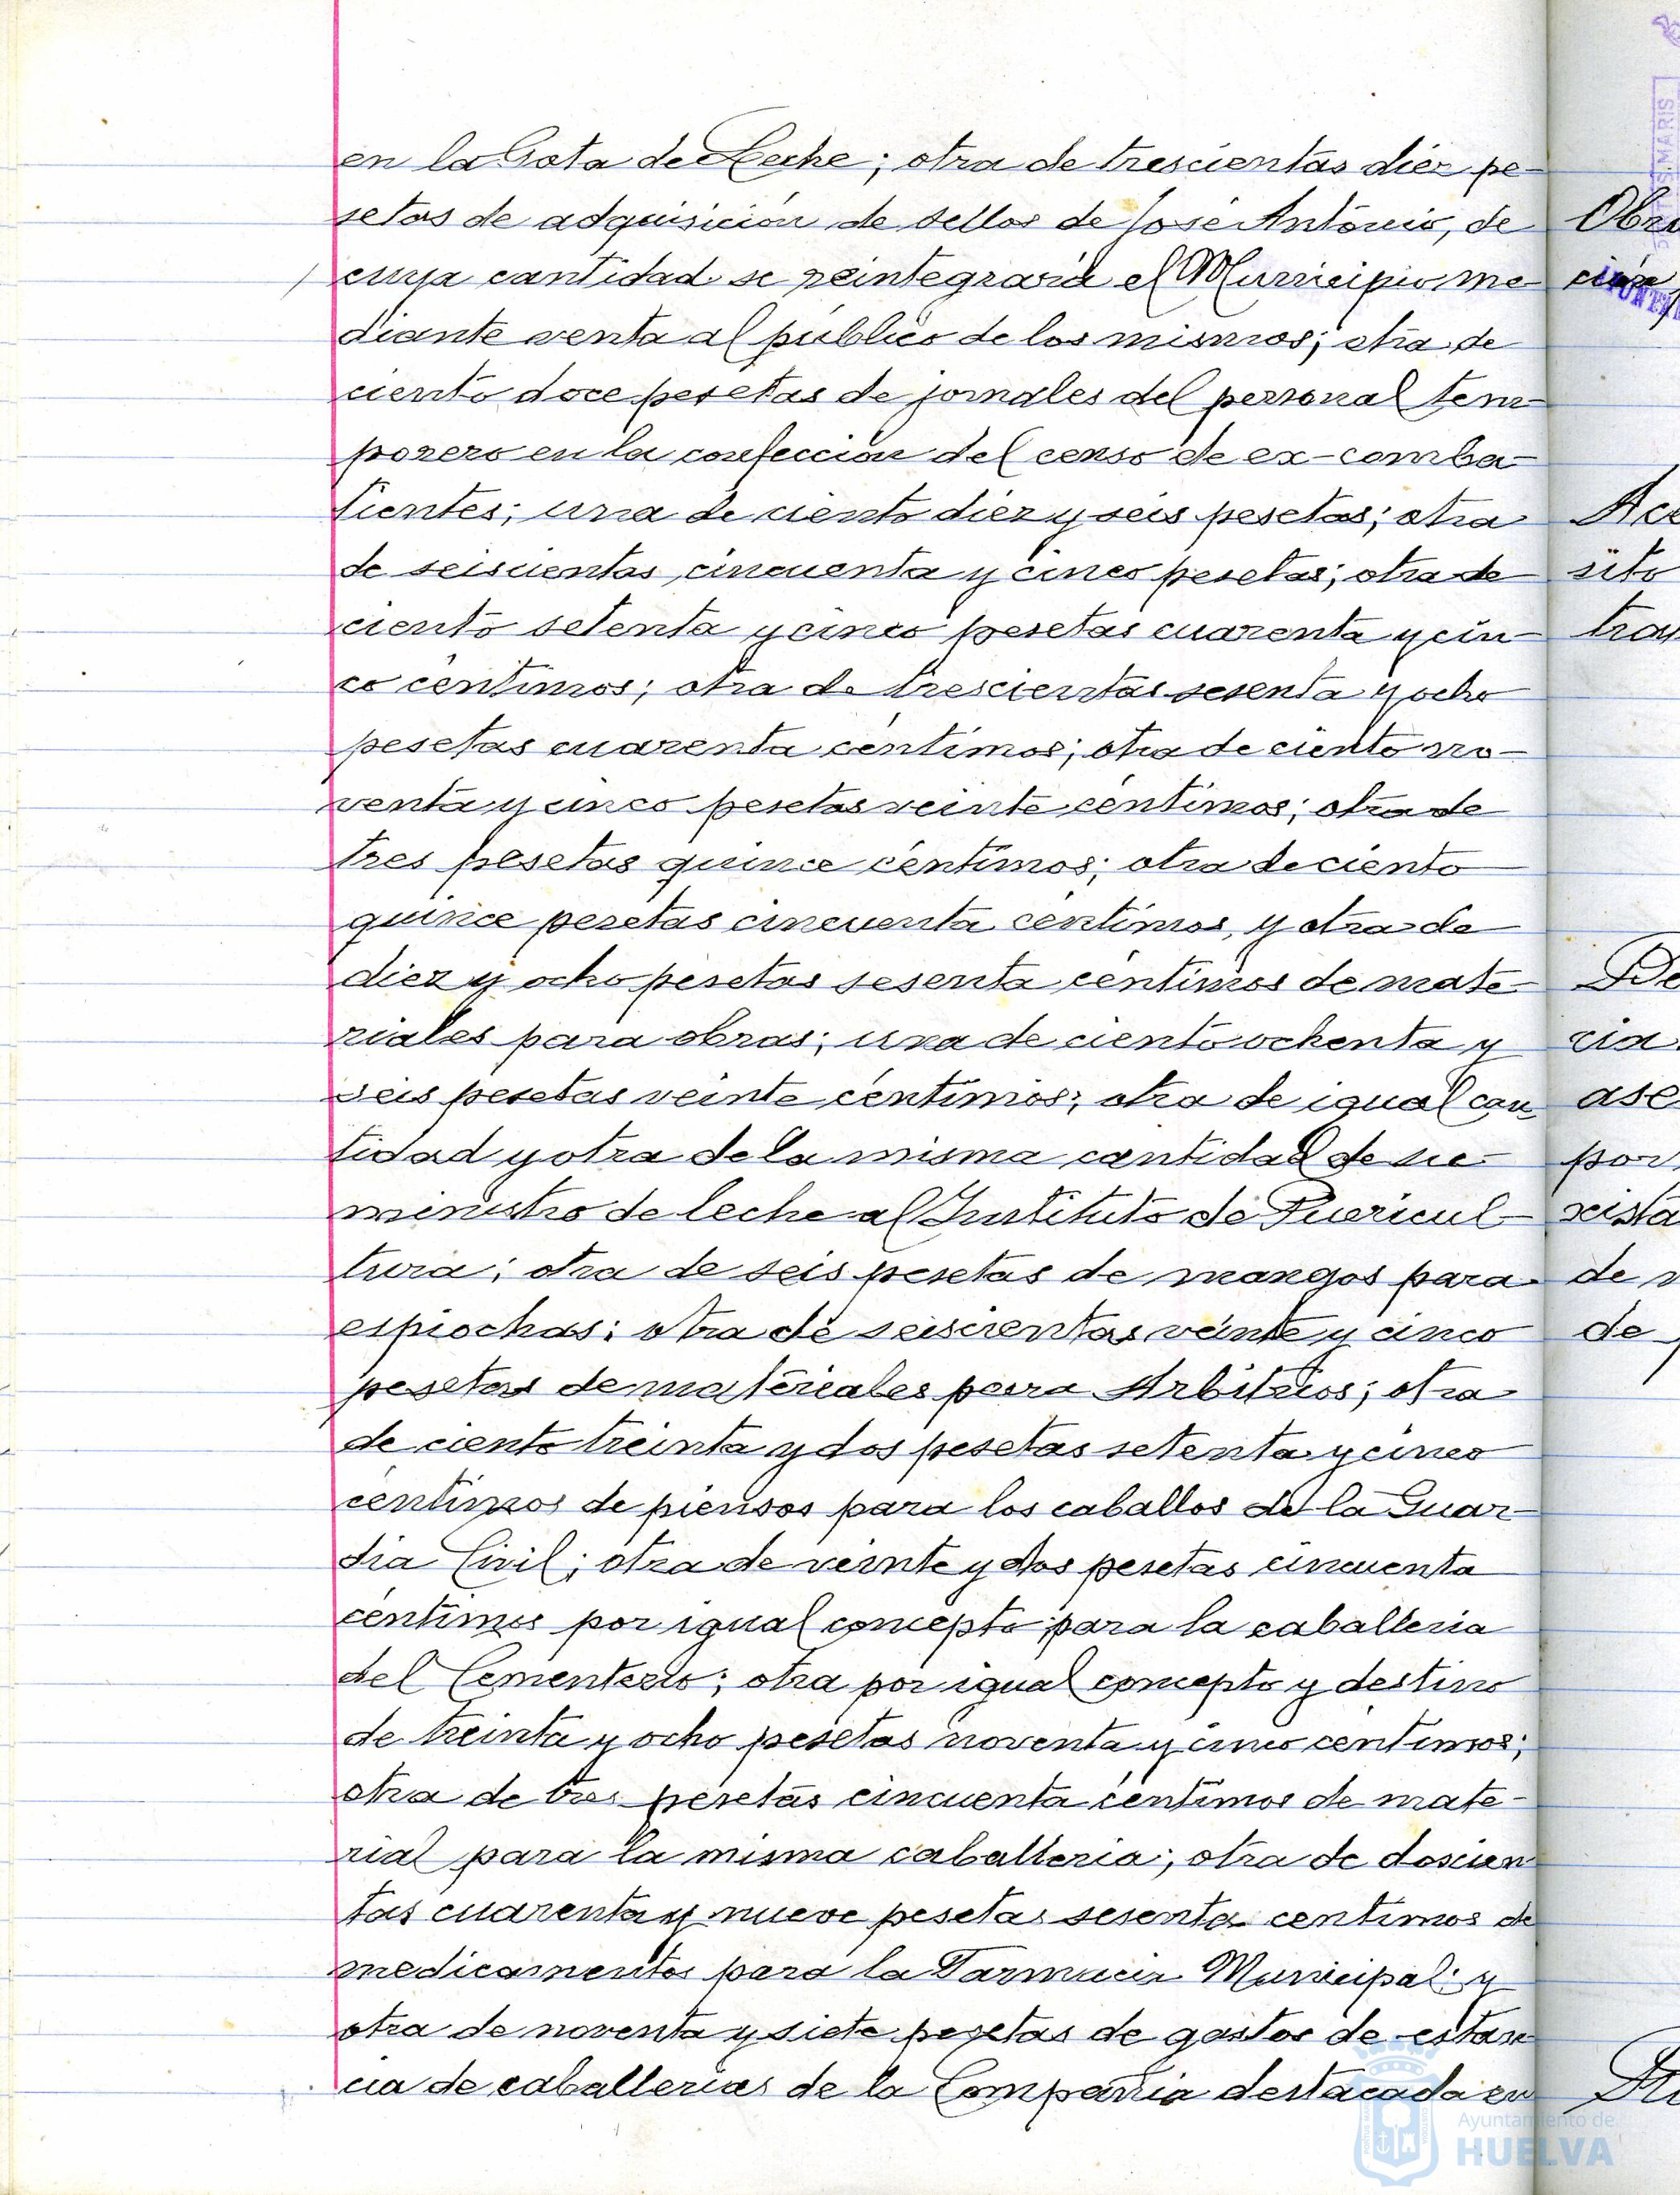 en la Gota de Leche; otra de trescientas diez pe-
setas de adquisición de sellos de José Antonio, de
cuya cantidad se reintegrará el Municipio me-
diante venta al público de los mismos; otra de
ciento doce pesetas de jornales del personal tem-
porero en la confección del censo de ex-comba-
tientes; una de ciento diez y seis pesetas; otra
de seiscientas cincuenta y cinco pesetas; otra de
ciento setenta y cinco pesetas cuarenta y cin-
co céntimos; otra de trescientas sesenta y ocho
pesetas cuarenta céntimos; otra de ciento no-
venta y cinco pesetas veinte céntimos; otra de
tres pesetas quince céntimos; otra de ciento
quince pesetas cincuenta céntimos, y otra de
diez y ocho pesetas sesenta céntimos de mate-
riales para obras; una de ciento ochenta y
seis pesetas veinte céntimos; otra de igual can-
tidad y otra de la misma cantidad de su-
ministro de leche al Instituto de Puericul-
tura; otra de seis pesetas de mangos para
espiochas; otra de seiscientas veinte y cinco
pesetas de materiales para Arbitrios; otra
de ciento treinta y dos pesetas setenta y cinco
céntimos de piensos para los caballos de la Guar-
dia Civil; otra de veinte y dos pesetas cincuenta
céntimos por igual concepto para la caballeria
del Cementerio; otra por igual concepto y destino
de treinta y ocho pesetas noventa y cinco centimos;
otra de tres pesetas cincuenta céntimos de mate-
rial para la misma caballeria; otra de doscien-
tas cuarenta y nueve pesetas sesenta centimos de
medicamentos para la Farmacia Municipal; y
otra de noventa y siete pesetas de gastos de estan-
cia de caballerias de la Compañia destacada en
Ayuntamiento de
HUELVA
Obra
Ace
sito
De
cia
ase
por
xista
de
de
MARIS